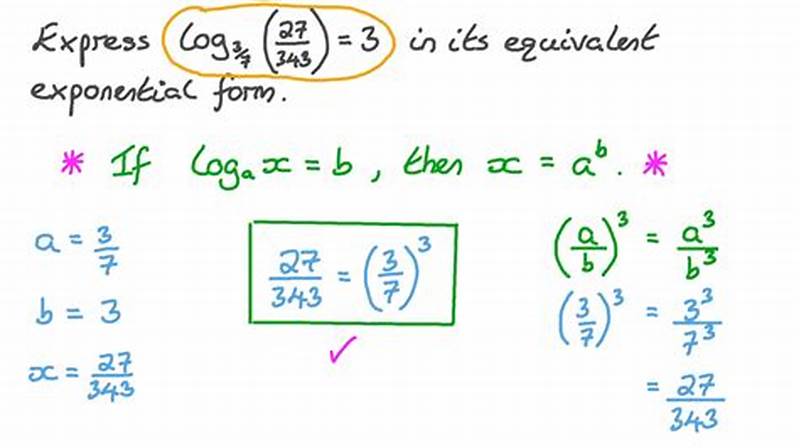 Express log_{3/7} (27/343) = 3 in its equivalent
exponential form.
* If log_a x = b , then x = a^b . *
a = 3/7
b = 3
x = 27/343
27/343 = (3/7)^3
✓
(a/b)^3 = a^3/b^3
(3/7)^3 = 3^3/7^3
= 27/343